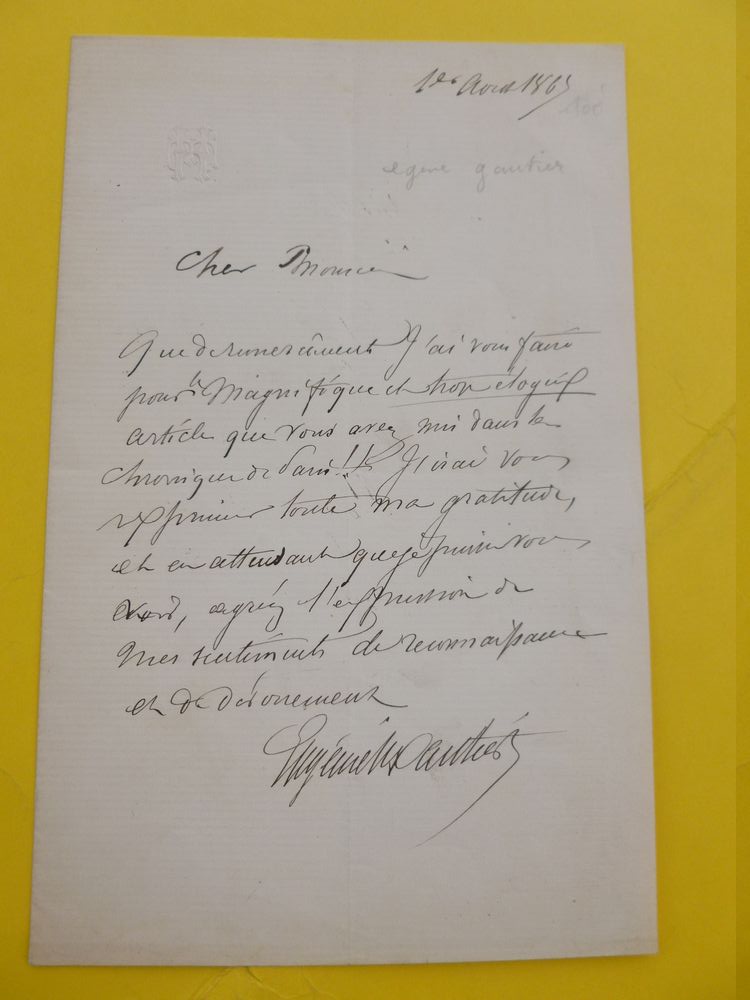 1er Avril 1865
egene gautier
Cher Monsieur
Que de remerciements J'ai vous faire
pour le Magnifique et trop élogieux
article que vous avez mis dans la
Chronique de Paris!! J'irai vous
exprimer toute ma gratitude,
et en attendant que je puisse vous
voir, agréez l'expression de
Mes sentiments de reconnaissance
et de dévouement
Eugène Gautier